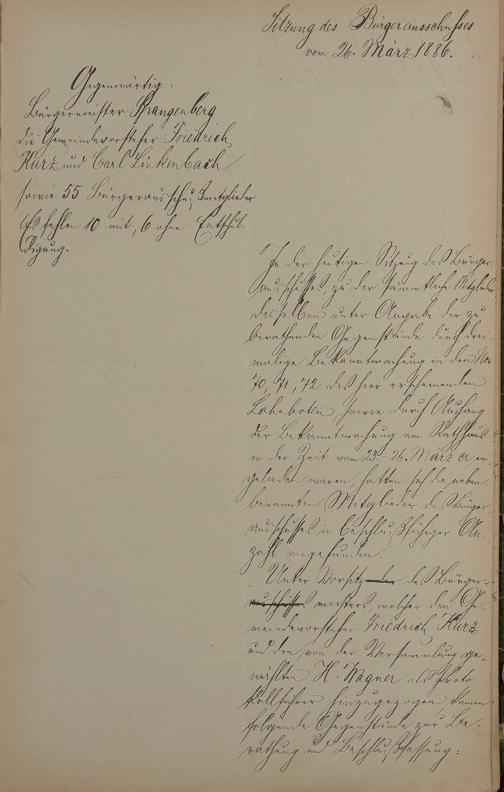 Sitzung des Bürgerausschusses
vom 26. März 1886.
Gegenwärtig.
Bürgermeister Spangenberg
die Gemeindevorsteher Friedrich
Kurz und Carl Linkenbach
sowie 55 Bürgerausschußmitglieder
Es fehlen 10 mit, 6 ohne Entschul-
digung.
In der heutigen Sitzung des Bürger-
ausschusses zu der sämmtliche Mitglieder
desselben unter Angabe der zu
berathenden Gegenstände durch drei-
malige Bekanntmachung in den No
70, 71, 72 des hier erscheinenden
Lahnboten, sowie durch Aushang
der Bekanntmachung am Rathhaus
in der Zeit vom 23-26. März cr ein-
geladen waren, hatten sich die neben-
benannten Mitglieder des Bürger-
ausschusses in beschlußfähiger An-
zahl eingefunden.
Unter Vorsitz des Bürger-
meisters, welcher den Ge-
meindevorsteher Friedrich Kurz
und den von der Versammlung ge-
wählten H. Wagner als Proto-
kollführer hinzugezogen kamen
folgende Gegenstände zur Be-
rathung und Beschlußfassung: